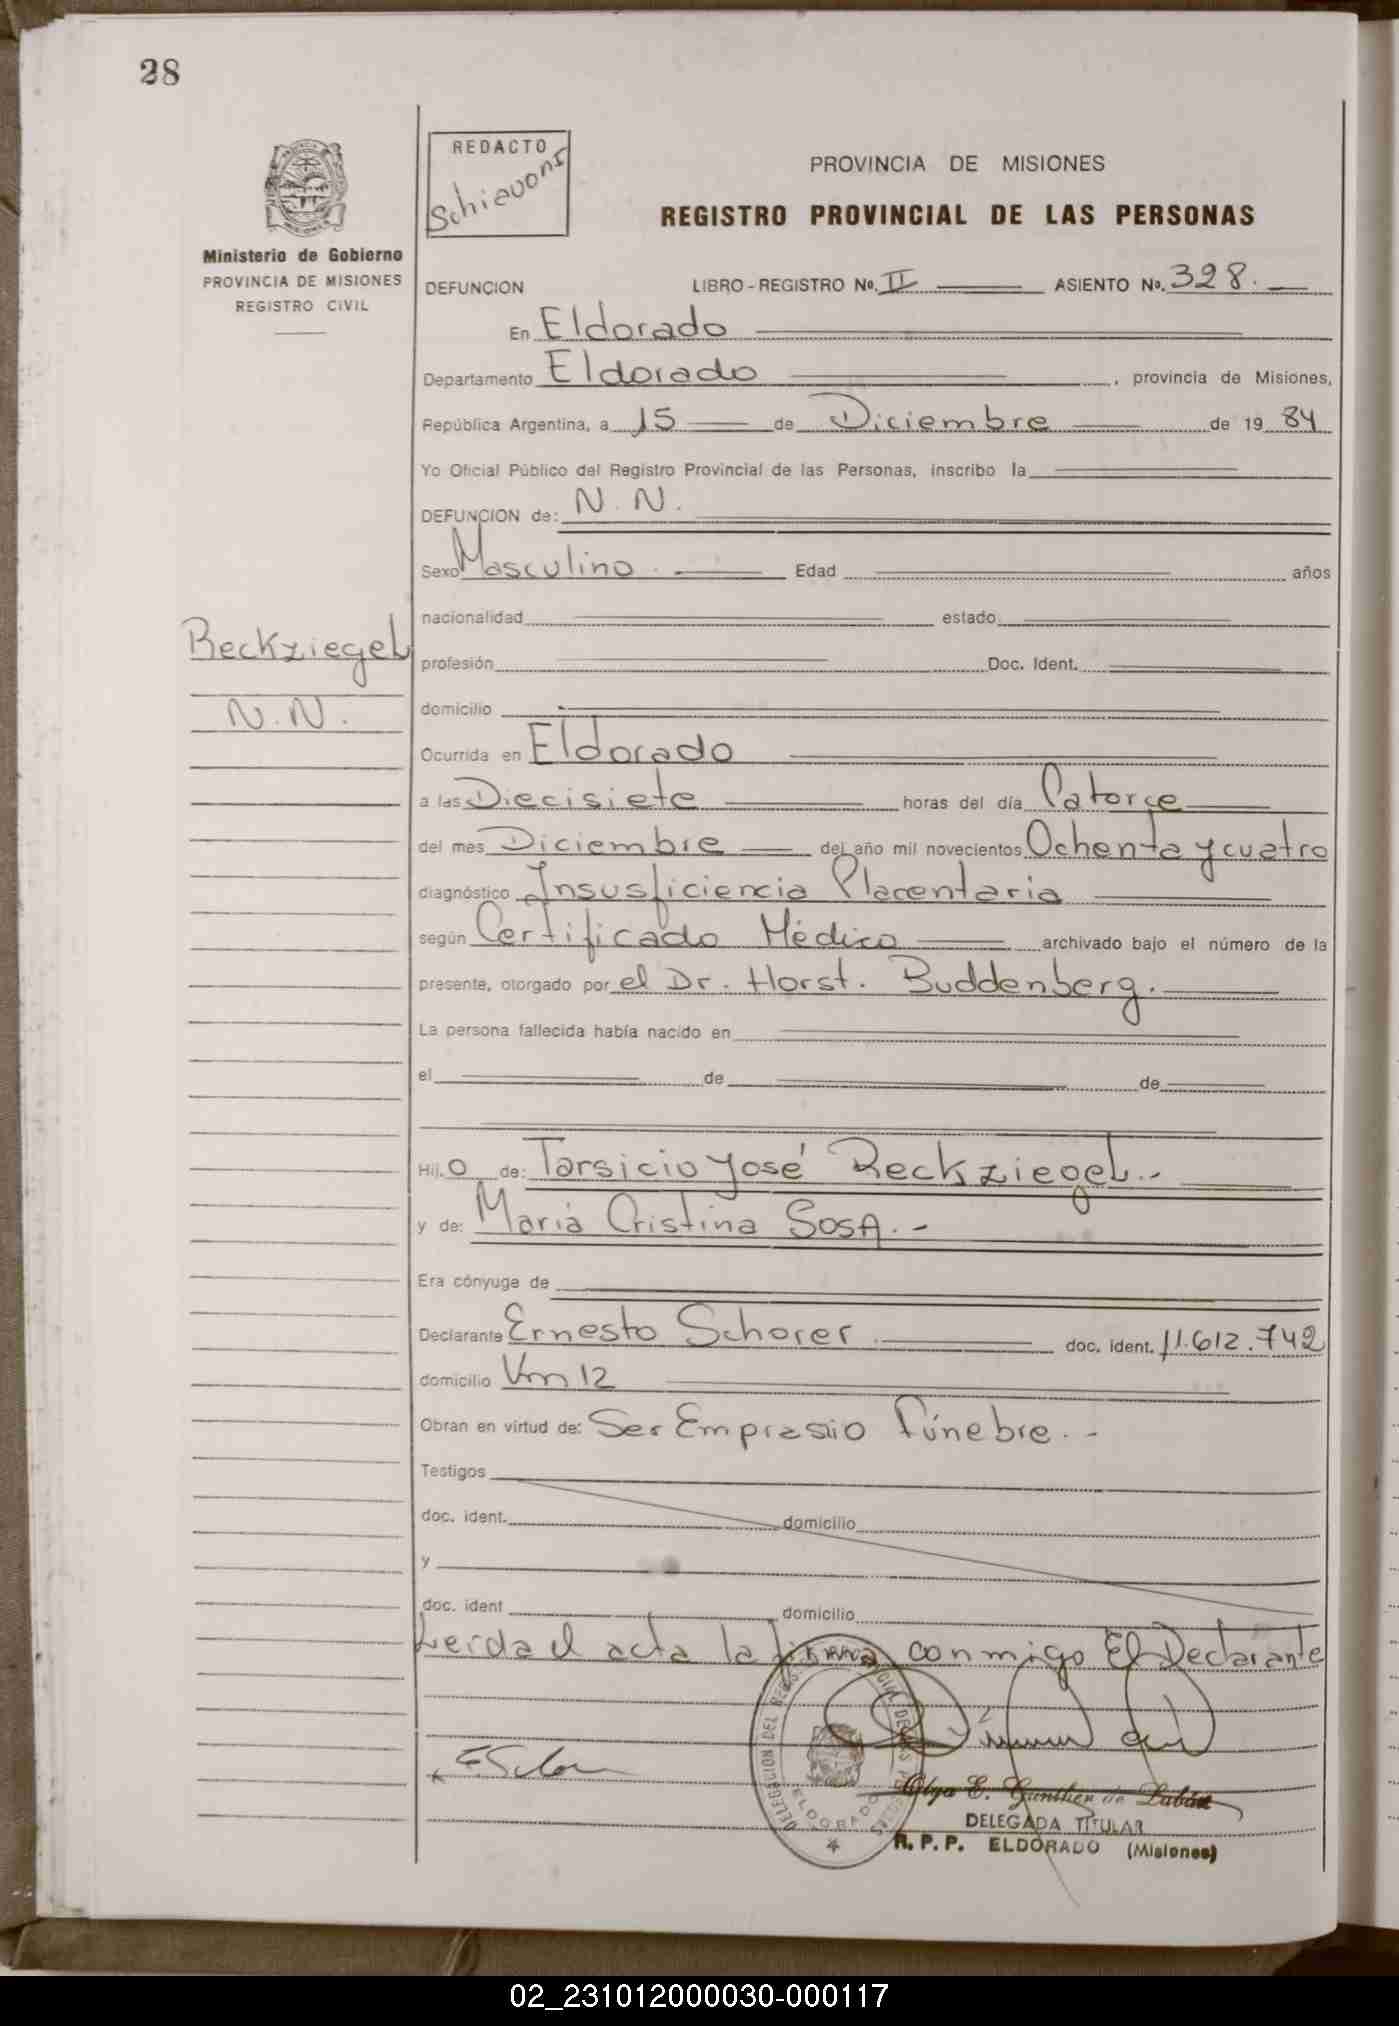 28
REDACTO
Schiavoni
PROVINCIA DE MISIONES
REGISTRO PROVINCIAL DE LAS PERSONAS
Ministerio de Gobierno
PROVINCIA DE MISIONES
REGISTRO CIVIL
DEFUNCION LIBRO - REGISTRO No. II ASIENTO No. 328.
En Eldorado
Departamento Eldorado, provincia de Misiones,
República Argentina, a 15 de Diciembre de 19 84
Yo Oficial Público del Registro Provincial de las Personas, inscribo la
DEFUNCION de: N. N.
Sexo Masculino. Edad años
nacionalidad estado
Reckziegel
profesión Doc. Ident.
N. N.
domicilio
Ocurrida en Eldorado
a las Diecisiete horas del día Catorce
del mes Diciembre del año mil novecientos Ochenta y cuatro
diagnóstico Insusficiencia Placentaria
según Certificado Médico archivado bajo el número de la
presente, otorgado por el Dr. Horst. Buddenberg.
La persona fallecida había nacido en
el de de
Hij o de: Tarsicio José Reckziegel.-
y de: Maria Cristina SosA.-
Era cónyuge de
Declarante Ernesto Schorer doc. ident. 11.612.742
domicilio Km 12
Obran en virtud de: Ser Emprasio Fúnebre.-
Testigos
doc. ident. domicilio
y
doc. ident domicilio
Leida el acta la firma conmigo El Declarante
DELEGACION DEL
ELDORADO
Olga E. Gunther de Labán
DELEGADA TITULAR
R. P. P. ELDORADO (Misiones)
02_231012000030-000117